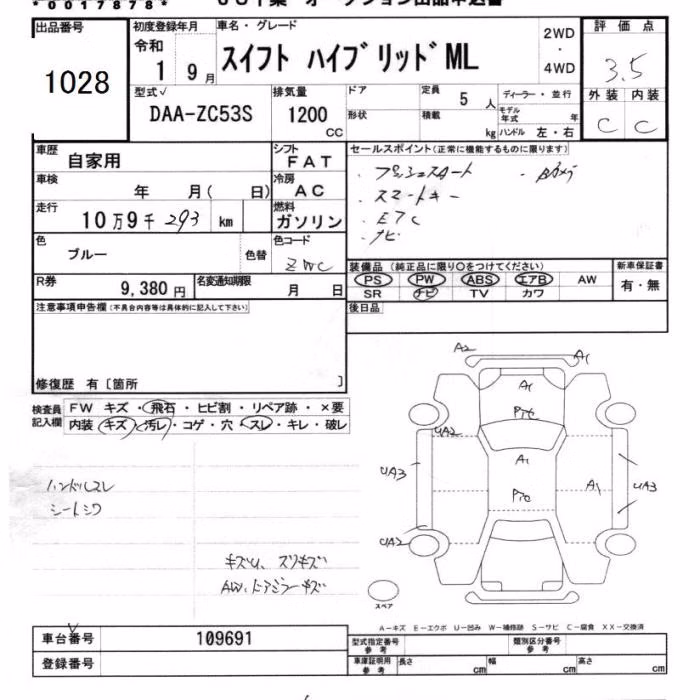 *0017878*
出品番号 初度登録年月 車名・グレード 2WD ・ 4WD 評価点
1028 令和 1 9月 スイフト ハイブリッドML 3.5
型式 排気量 ドア 定員 5 人 ディーラー・並行 外装 内装
DAA-ZC53S 1200 CC 形状 積載 kg モデル年式 年 ハンドル 左・右 C C
車歴 自家用 シフト FAT セールスポイント(正常に機能するものに限ります)
車検 年 月( 日) 冷房 AC ・プッシュスタート
走行 10万9千293 km 燃料 ガソリン ・スマートキー
・ETC
・ナビ
色 ブルー 色替 色コード ZWC
装備品 (純正品に限り○をつけてください) 新車保証書
R券 9,380円 名変通知期限 月 日 PS PW ABS エアB AW 有・無
SR ナビ TV カワ
注意事項申告欄(不具合内容等は具体的に記入して下さい) 後日品
修復歴 有〔箇所 〕
検査員記入欄 FW キズ・飛石・ヒビ割・リペア跡・×要
内装 キズ・汚レ・コゲ・穴・スレ・キレ・破レ
ハンドルスレ
シートシワ
キズU、スリキズ
AW、ドアミラーキズ
A2 A1
A1
PTC
UA2
A1
UA3 PTC A1 UA3
UA2
スペア
A－キズ E－エクボ U－凹み W－補修跡 S－サビ C－腐食 XX－交換済
車台番号 109691 型式指定番号 参考 類別区分番号 参考
登録番号 車庫証明用 参考 長さ cm 幅 cm 高さ cm